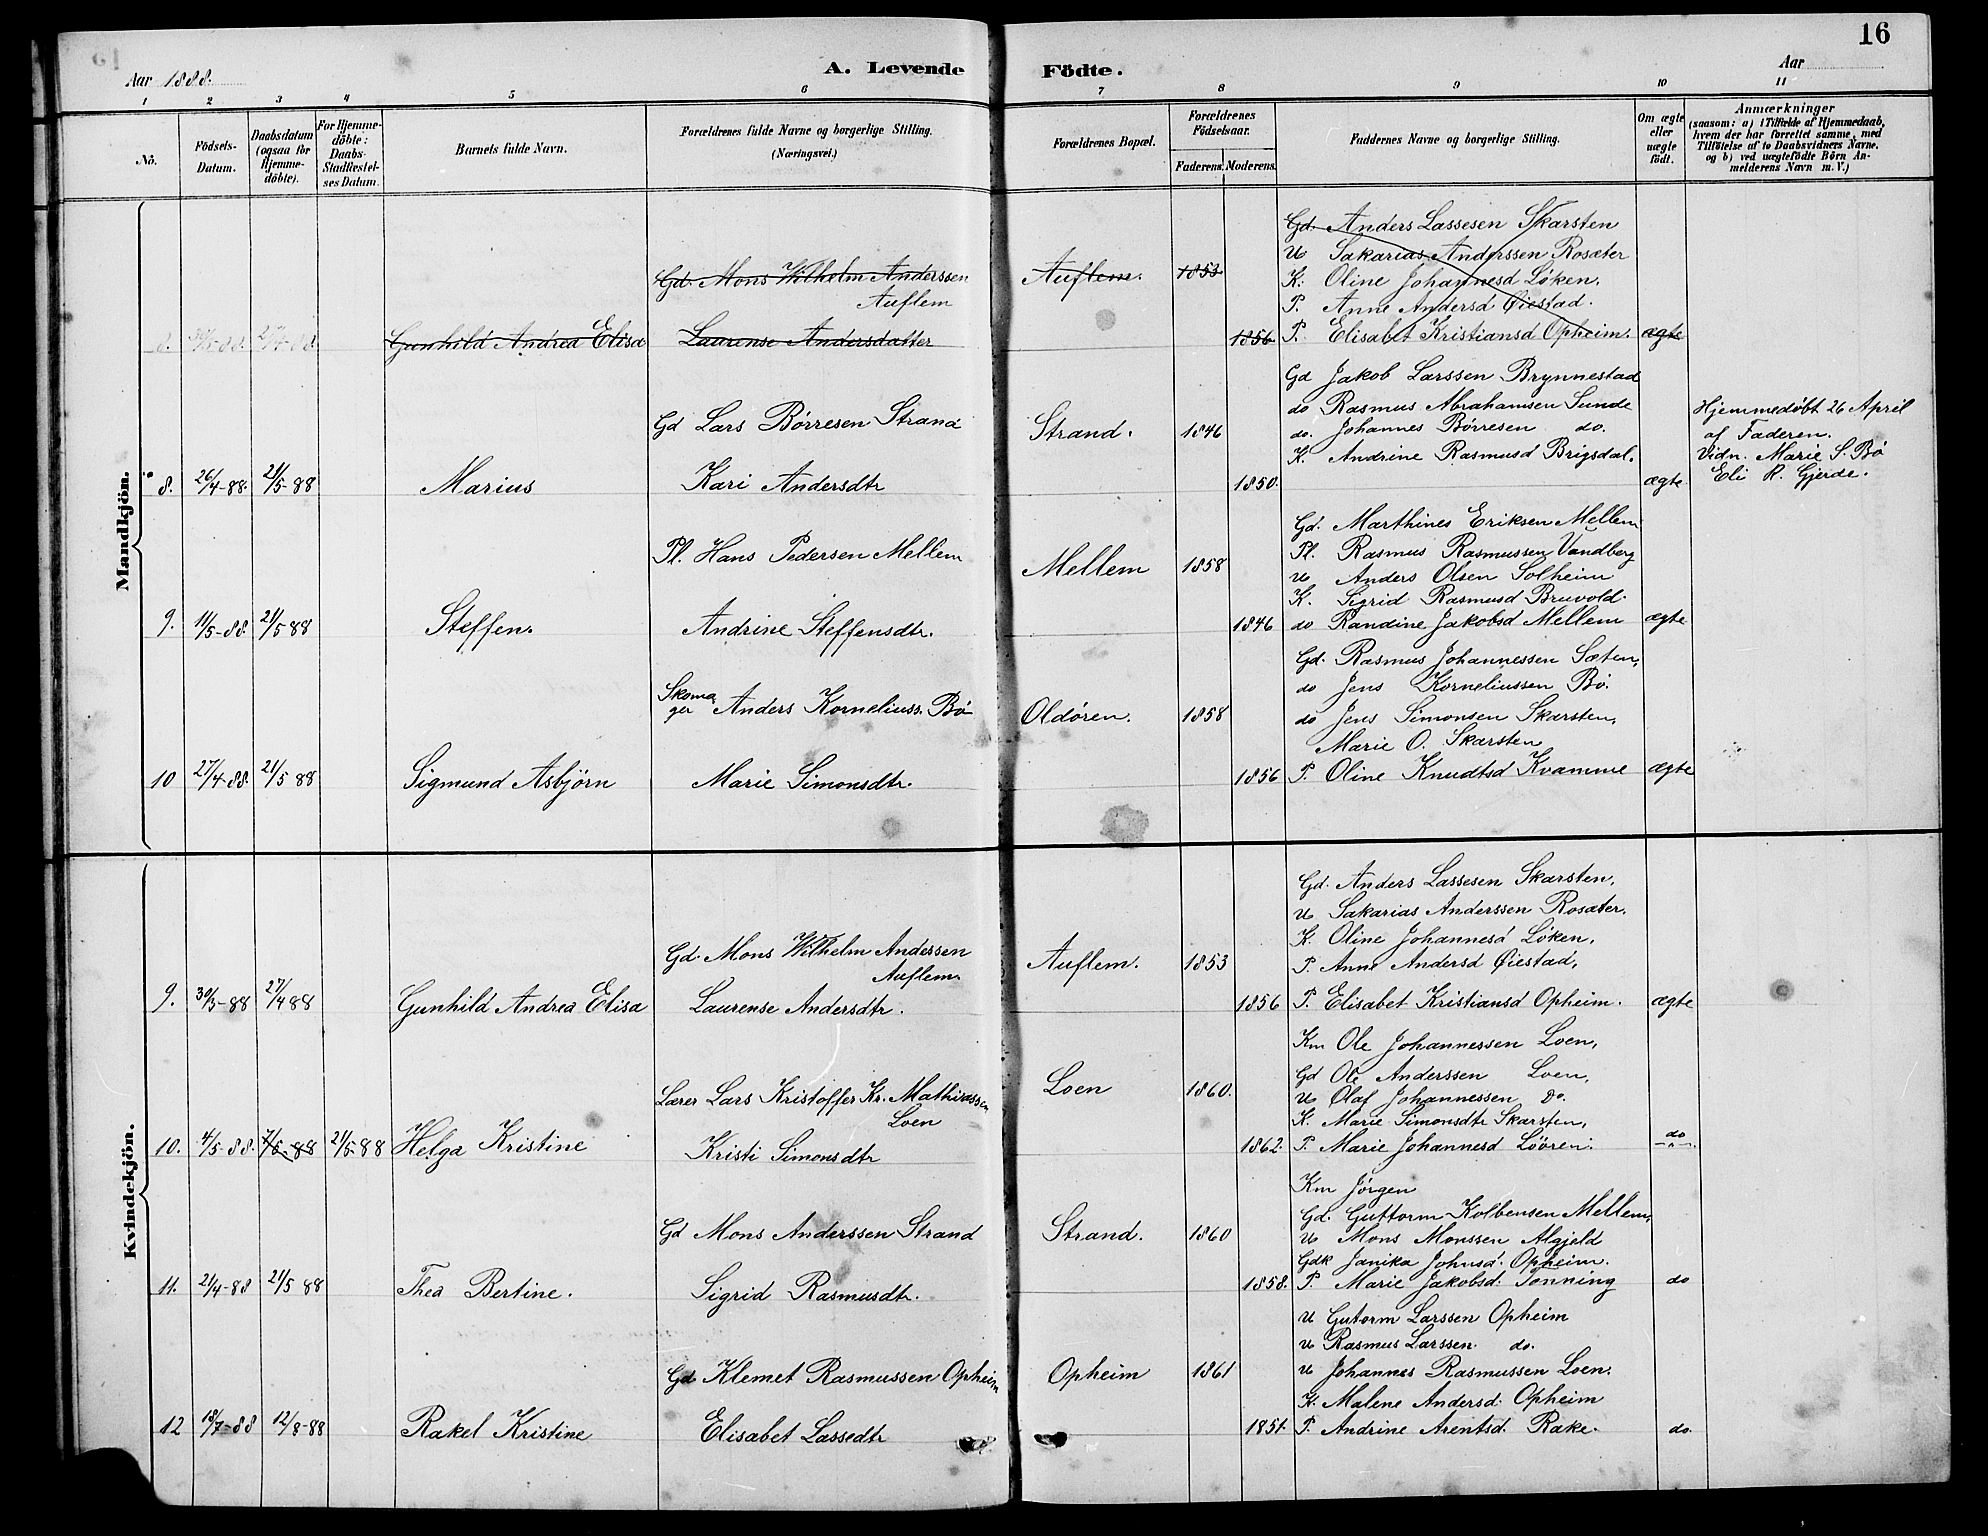 16
Aar 1888.
A. Levende Födte.
Aar
1 2 3 4 5 6 7 8 9 10 11
No.
Födsels-Datum.
Daabsdatum (ogsaa for Hjemme-döbte).
For Hjemme-döbte: Daabs-Stadfæstel-ses Datum.
Barnets fulde Navn.
Forældrenes fulde Navne og borgerlige Stilling. (Næringsvei.)
Forældrenes Bopæl.
Forældrenes Födselsaar.
Faderens. Moderens.
Faddernes Navne og borgerlige Stilling.
Om ægte eller uægte födt.
Anmærkninger
(saasom: a) i Tilfælde af Hjemmedaab, hvem der har forrettet samme, med Tilföielse af to Daabsvidners Navne, og b) ved uægtefödte Börn An-melderens Navn m. V.)
Mandkjön.
Gd. Anders Lassesen Skarsten
U Sakarias Anderssen Rosæter
Gd. Mons Wilhelm Anderssen Auflem
Auflem. 1853
K. Oline Johannesd Løken.
P. Anne Andersd Øiestad.
8. 30/3-88. 27/4-88. Gunhild Andrea Elisa Laurense Andersdatter 1856 P. Elisabet Kristiansd Opheim. ægte
Gd Jakob Larssen Brynnestad
do Rasmus Abrahamsen Sunde
Gd Lars Børresen Strand Strand. 1846
do. Johannes Børresen do.
K. Andrine Rasmusd Brigsdal.
8. 26/4-88. 21/5-88 Marius Kari Andersdtr 1850. ægte
Hjemmedøbt 26 April
af Faderen.
Vidn. Marie S. Bø
Eli R. Gjerde.
Gd. Marthines Eriksen Mellem
Pl. Hans Pedersen Mellem Mellem 1858
Pl. Rasmus Rasmussen Vandberg
U Anders Olsen Solheim
K. Sigrid Rasmusd Bruvold.
9. 11/5-88. 21/5 88 Steffen. Andrine Steffensdtr. 1846 do Randine Jakobsd Mellem ægte
Gd. Rasmus Johannessen Sæten,
do Jens Korneliussen Bø.
Skomager Anders Korneliuss. Bø Oldøren. 1858
do Jens Simonsen Skarsten,
Marie O. Skarsten
10 27/4-88. 21/5 88 Sigmund Asbjörn Marie Simonsdtr. 1856 P. Oline Knudtsd Kvamme ægte
Kvindekjön.
Gd. Anders Lassesen Skarsten,
U Sakarias Anderssen Rosæter.
Gd. Mons Wilhelm Andersen Auflem. Auflem. 1853
K. Oline Johannesd Løken,
P. Anne Andersd Øiestad,
9. 30/3-88 27/4 88 Gunhild Andrea Elisa Laurense Andersdtr. 1856 P. Elisabet Kristiansd Opheim. ægte
Km Ole Johannessen Loen,
Gd Ole Anderssen Loen,
Lærer Lars Kristoffer Kr. Mathiassen Loen Loen 1860.
U Olaf Johannessen Do.
K. Marie Simonsdtr Skarsten,
10. 4/5-88. 7/5-88 21/5-88 Helga Kristine Kristi Simonsdtr 1862. P. Marie Johannesd Löören. do
Km Jörgen
Gd. Guttorm Kolbensen Mellem,
Gd Mons Anderssen Strand Strand. 1860
U Mons Monssen Algjeld
Gdk Janika Johnsd. Opheim.
11. 21/4-88 21/5 88 Thea Bertine. Sigrid Rasmusdtr. 1858. P. Marie Jakobsd. Tonning do
U Gutorm Larssen Opheim
U Rasmus Larssen do.
Gd Klemet Rasmussen Opheim Opheim 1861
U Johannes Rasmussen Loen.
K. Malene Andersd. Opheim
12 18/7-88 12/8-88 Rakel Kristine Elisabet Lassedtr 1851. P. Andrine Arentsd. Rake. do.